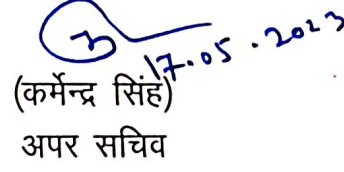 17.05.2023
(कर्मेन्द्र सिंह)
अपर सचिव